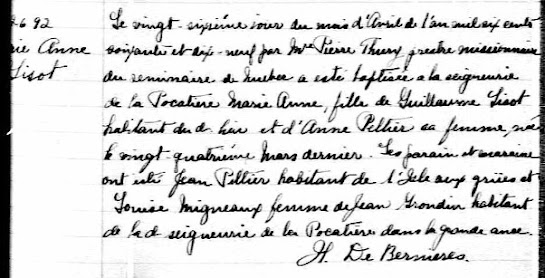 6 92
rie Anne
Lisot
Le vingt-sixième jour du mois d'Avril de l'an mil six cents
soixante et dix-neuf par Mre Pierre Thury prestre missionnaire
du seminaire de Quebec a esté baptisée a la seigneurie
de la Pocatiere Marie Anne, fille de Guillaume Lisot
habitant du d. lieu et d'Anne Peltier sa femme, née
le vingt-quatrième Mars dernier. Les parain et maraine
ont esté Jean Peltier habitant de l'Isle aux grües et
Louise Migneaux femme de Jean Grondin habitant
de la d. seigneurie de la Pocatiere dans la grande anse.
H. De Bernieres.